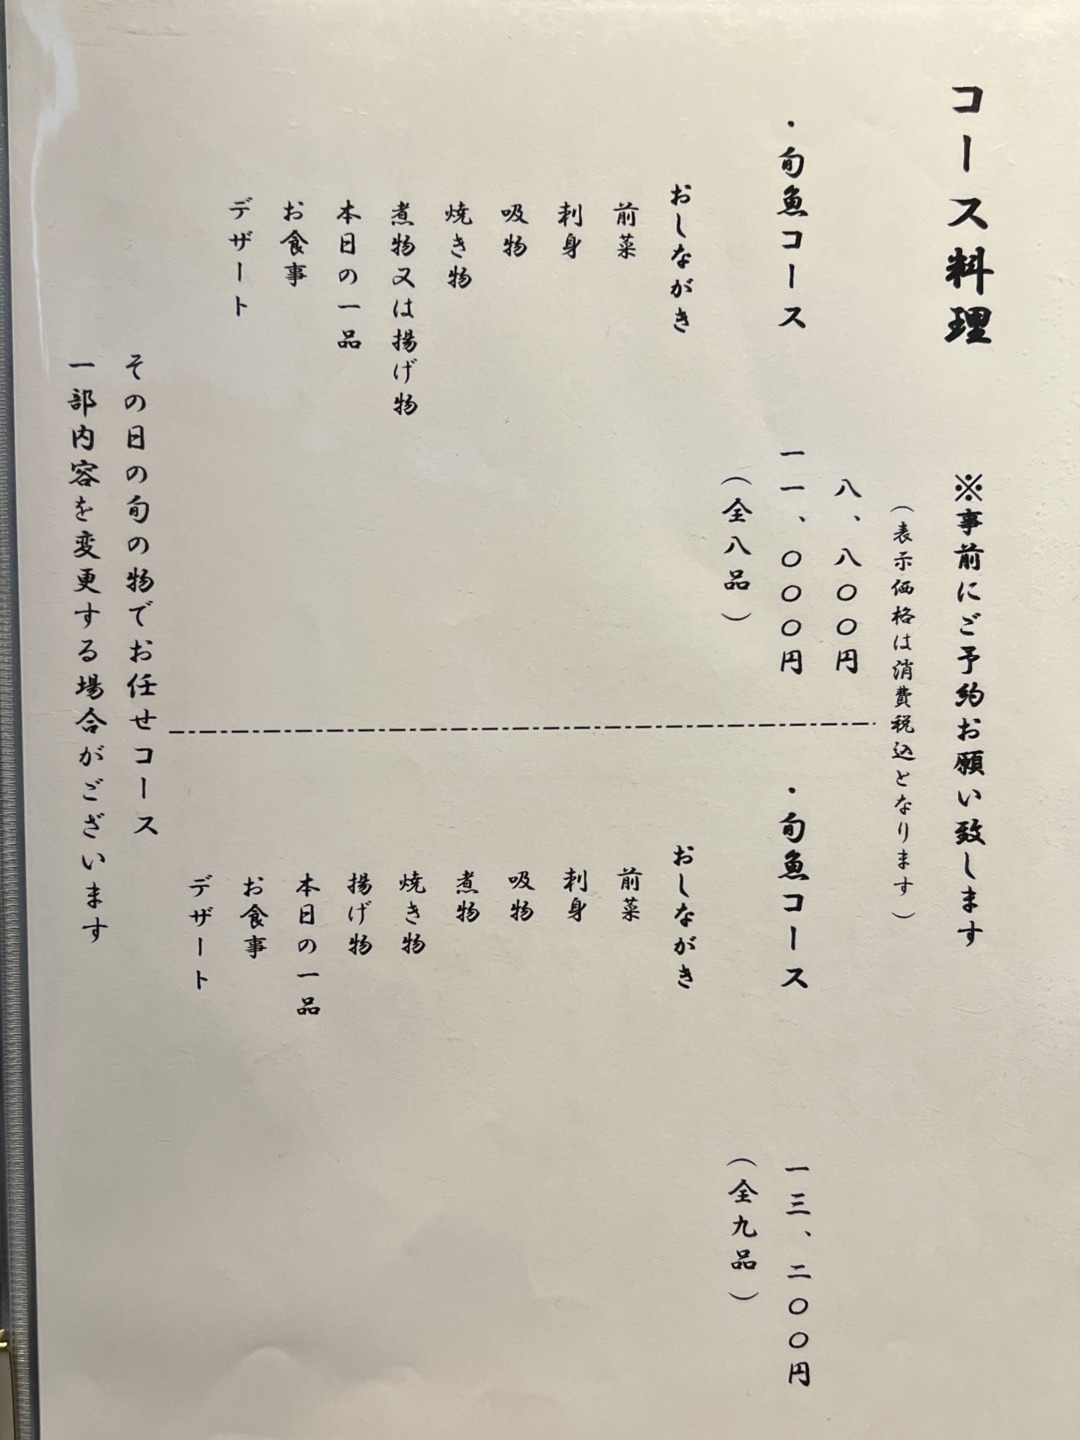 コース料理　※事前にご予約お願い致します
（表示価格は消費税込となります）
八、八〇〇円
・旬魚コース　一一、〇〇〇円
（全八品）
おしながき
前菜
刺身
吸物
焼き物
煮物又は揚げ物
本日の一品
お食事
デザート
・旬魚コース　一三、二〇〇円
（全九品）
おしながき
前菜
刺身
吸物
煮物
焼き物
揚げ物
本日の一品
お食事
デザート
その日の旬の物でお任せコース
一部内容を変更する場合がございます